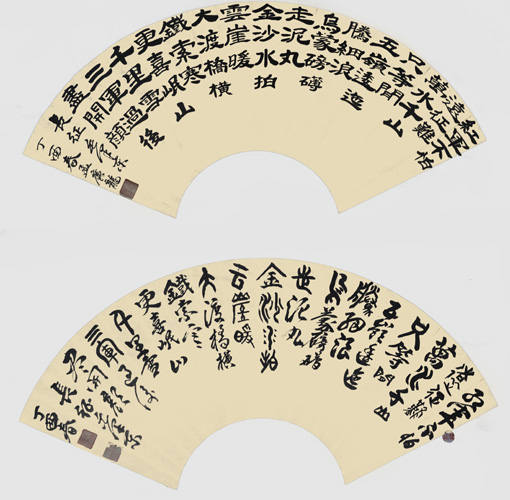 紅軍不怕
遠征難
萬水千山
只等閒
五嶺逶迤
騰細浪
烏蒙磅礴
走泥丸
金沙水拍
雲崖暖
大渡橋橫
鐵索寒
更喜岷山
千里雪
三軍過後
盡開顏
長征
丁酉春
紅軍不怕
遠征難
萬水千山
只等閒
五嶺逶迤
騰細浪
烏蒙磅礴
走泥丸
金沙水拍
雲崖暖
大渡橋橫
鐵索寒
更喜岷山
千里雪
三軍過後
盡開顏
長征
丁酉春